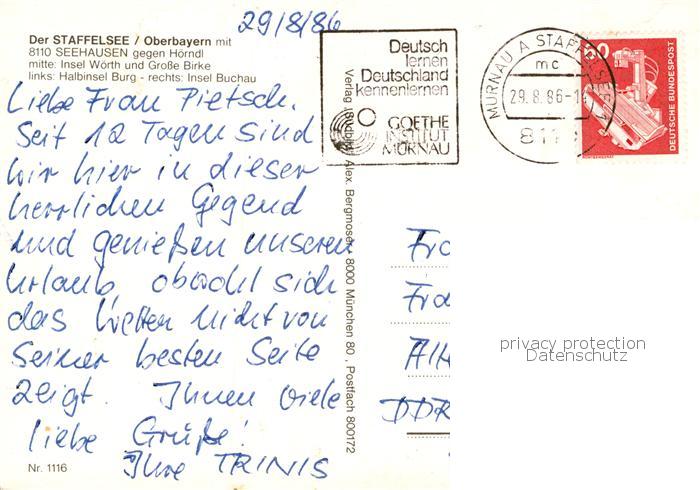 29/8/86
Der STAFFELSEE / Oberbayern mit
8110 SEEHAUSEN gegen Hörndl
mitte: Insel Wörth und Große Birke
links: Halbinsel Burg - rechts: Insel Buchau
Liebe Frau Pietsch.
Seit 12 Tagen sind
wir hier in dieser
herrlichen Gegend
und genießen unseren
Urlaub, obwohl sich
das Wetter nicht von
seiner besten Seite
zeigt. Ihnen viele
liebe Grüße!
Ihre TRINIS
Nr. 1116
Verlag Alex. Bergmoser, 8000 München 80, Postfach 800172
Deutsch
lernen
Deutschland
kennenlernen
GOETHE
INSTITUT
MURNAU
MURNAU A STAFFELSEE
mc
29.8.86-1
811
DEUTSCHE BUNDESPOST
Fra
Fra
Alt
DDR
privacy protection
Datenschutz